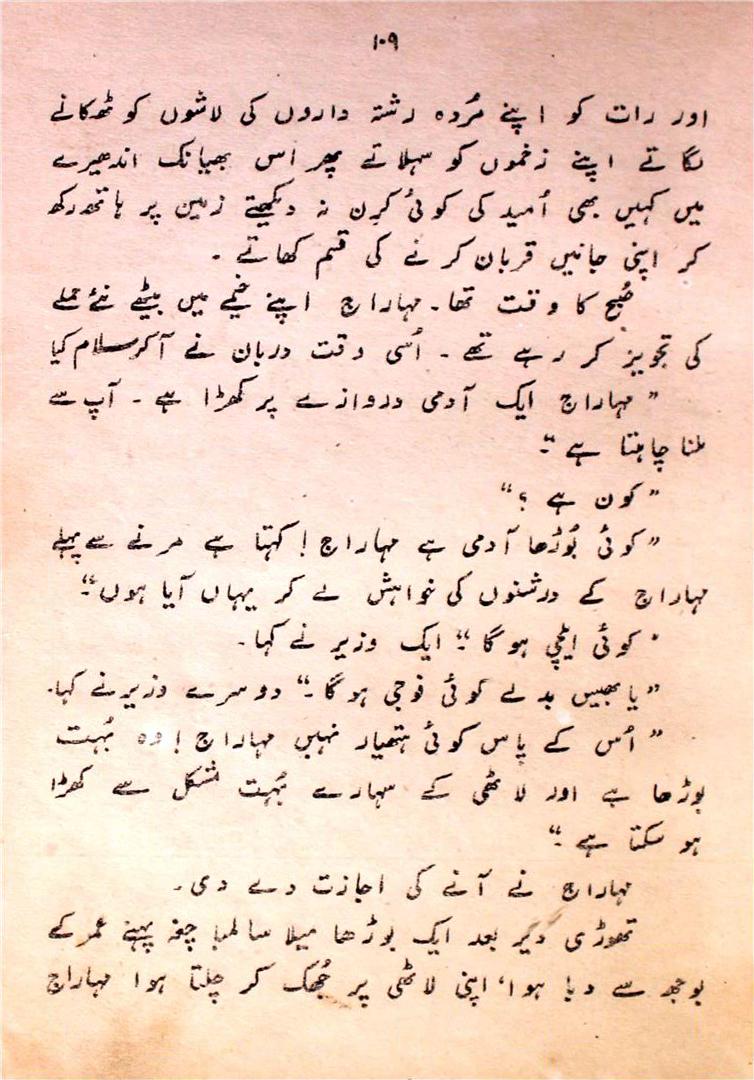 ۱۰۹
اور رات کو اپنے مُردہ رشتہ داروں کی لاشوں کو ٹھکانے
لگاتے اپنے زخموں کو سہلاتے پھر اس بھیانک اندھیرے
میں کہیں بھی اُمید کی کوئی کرن نہ دیکھتے زمین پر ہاتھ رکھ
کر اپنی جانیں قربان کرنے کی قسم کھاتے ۔
صُبح کا وقت تھا۔ مہاراج اپنے خیمے میں بیٹھے نئے حملے
کی تجویز کر رہے تھے ۔ اُسی وقت دربان نے آکر سلام کیا
” مہاراج ایک آدمی دروازے پر کھڑا ہے ۔ آپ سے
ملنا چاہتا ہے “۔
” کون ہے ؟“
” کوئی بُوڑھا آدمی ہے مہاراج ! کہتا ہے مرنے سے پہلے
مہاراج کے درشنوں کی خواہش لے کر یہاں آیا ہوں“۔
” کوئی ایلچی ہو گا “۔ ایک وزیر نے کہا۔
” یا بھیس بدلے کوئی فوجی ہو گا ۔“ دوسرے وزیر نے کہا۔
” اُس کے پاس کوئی ہتھیار نہیں مہاراج ! وہ بُہت
بوڑھا ہے اور لاٹھی کے سہارے بُہت مُشکل سے کھڑا
ہو سکتا ہے ۔“
مہاراج نے آنے کی اجازت دے دی۔
تھوڑی دیر بعد ایک بوڑھا میلا سا لمبا چغہ پہنے عمر کے
بوجھ سے دبا ہوا، اپنی لاٹھی پر جُھک کر چلتا ہوا مہاراج